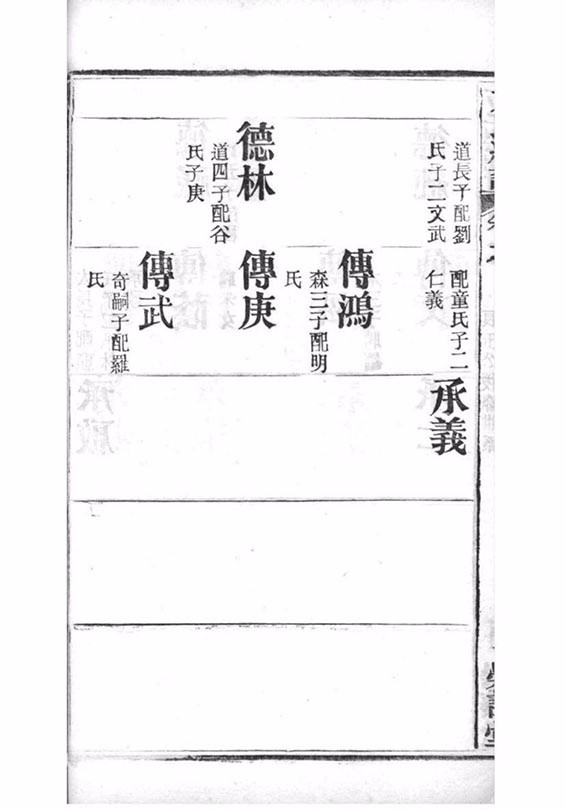 道長子配劉
氏子二文武
德林
道四子配谷
氏子庚
配童氏子二
仁義
傳鴻
森三子配明
氏
傳庚
傳武
奇嗣子配羅
氏
承義